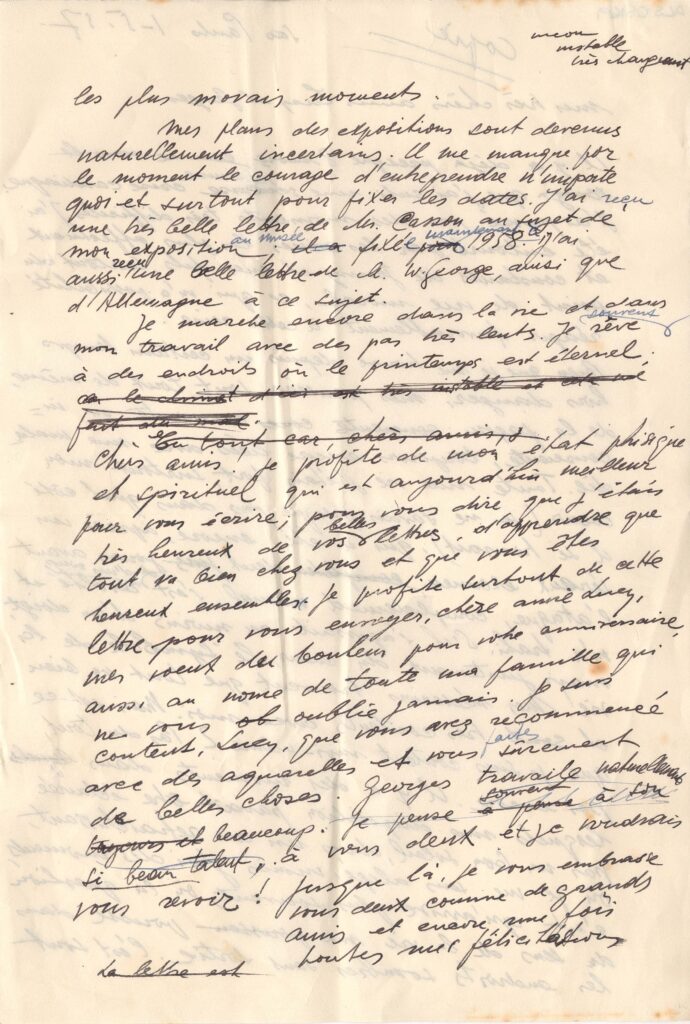 incon
instable
très changeant
les plus movais moments.
Mes plans des expositions sont devenus
naturellement incertains. Il me manque por
le moment le courage d'entreprendre n'importe
quoi et surtout pour fixer les dates. J'ai reçu
une très belle lettre de M. Cassou au sujet de
mon exposition au musée fixée maintenant à 1958. J'ai
aussi reçu une belle lettre de M. W. George, ainsi que
d'Allemagne à ce sujet.
Je marche encore dans la vie et dans
mon travail avec des pas très lents. Je rêve souvent
à des endroits où le printemps est éternel.
car le climat d'ici est très instable et cela me
fait du mal.
En tout cas, chers amis,
Chers amis. Je profite de mon état phisique
et spirituel qui est aujourd'hui meilleur
pour vous écrire; pour vous dire que j'étais
très heureux de vos belles lettres, d'apprendre que
tout va bien chez vous et que vous êtes
heureux ensembles. Je profite surtout de cette
lettre pour vous envoyer, chère amie Lucy,
mes voeux du bonheur pour votre anniversaire,
aussi au nome de toute ma famille qui
ne vous oublie jamais. Je suis
content, Lucy, que vous avez recommencé
avec des aquarelles et vous faites sûrement
de belles choses. Georges travaile naturellement
toujours et beaucoup. Je pense souvent à son
si beau talent, à vous deux et je voudrais
vous revoir! Jusque là, je vous embrasse
vous deux comme de grands
amis et encore une fois
toutes mes félicitations
La lettre est